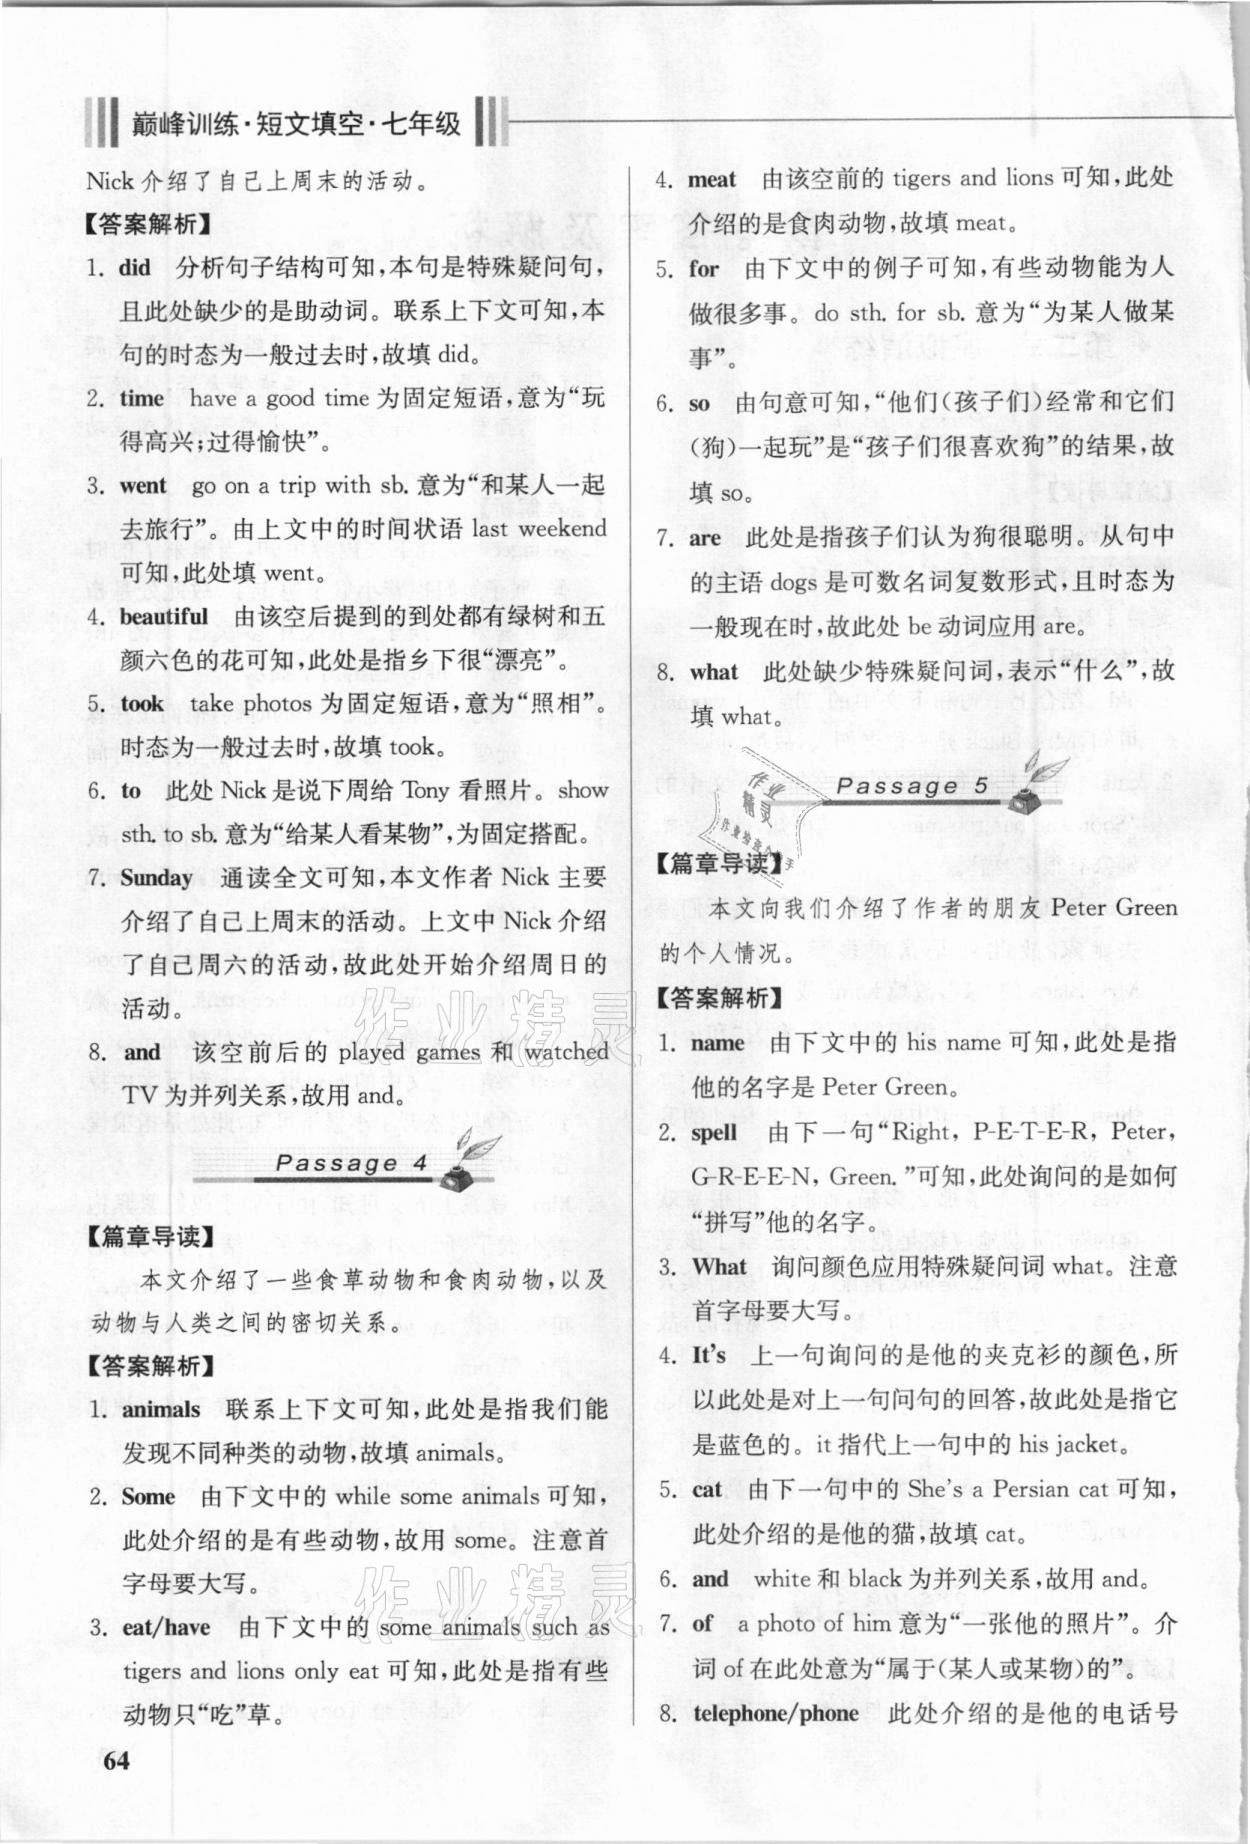 巅峰训练·短文填空·七年级
Nick介绍了自己上周末的活动。
【答案解析】
1. did 分析句子结构可知,本句是特殊疑问句,
且此处缺少的是助动词。联系上下文可知,本
句的时态为一般过去时,故填 did。
2. time have a good time 为固定短语,意为“玩
得高兴;过得愉快”。
3. went go on a trip with sb. 意为“和某人一起
去旅行”。由上文中的时间状语 last weekend
可知,此处填 went。
4. beautiful 由该空后提到的到处都有绿树和五
颜六色的花可知,此处是指乡下很“漂亮”。
5. took take photos 为固定短语,意为“照相”。
时态为一般过去时,故填 took。
6. to 此处 Nick 是说下周给 Tony 看照片。show
sth. to sb. 意为“给某人看某物”,为固定搭配。
7. Sunday 通读全文可知,本文作者 Nick 主要
介绍了自己上周末的活动。上文中 Nick 介绍
了自己周六的活动,故此处开始介绍周日的
活动。
8. and 该空前后的 played games 和 watched
TV 为并列关系,故用 and。
Passage 4
【篇章导读】
本文介绍了一些食草动物和食肉动物,以及
动物与人类之间的密切关系。
【答案解析】
1. animals 联系上下文可知,此处是指我们能
发现不同种类的动物,故填 animals。
2. Some 由下文中的 while some animals 可知,
此处介绍的是有些动物,故用 some。注意首
字母要大写。
3. eat/have 由下文中的 some animals such as
tigers and lions only eat 可知,此处是指有些
动物只“吃”草。
64
4. meat 由该空前的 tigers and lions 可知,此处
介绍的是食肉动物,故填 meat。
5. for 由下文中的例子可知,有些动物能为人
做很多事。do sth. for sb. 意为“为某人做某
事”。
6. so 由句意可知,“他们(孩子们)经常和它们
(狗)一起玩”是“孩子们很喜欢狗”的结果,故
填 so。
7. are 此处是指孩子们认为狗很聪明。从句中
的主语 dogs 是可数名词复数形式,且时态为
一般现在时,故此处 be 动词应用 are。
8. what 此处缺少特殊疑问词,表示“什么”,故
填 what。
Passage 5
【篇章导读】
本文向我们介绍了作者的朋友 Peter Green
的个人情况。
【答案解析】
1. name 由下文中的 his name 可知,此处是指
他的名字是 Peter Green。
2. spell 由下一句“Right, P-E-T-E-R, Peter,
G-R-E-E-N, Green.”可知,此处询问的是如何
“拼写”他的名字。
3. What 询问颜色应用特殊疑问词 what。注意
首字母要大写。
4. It's 上一句询问的是他的夹克衫的颜色,所
以此处是对上一句问句的回答,故此处是指它
是蓝色的。it 指代上一句中的 his jacket。
5. cat 由下一句中的 She's a Persian cat 可知,
此处介绍的是他的猫,故填 cat。
6. and white 和 black 为并列关系,故用 and。
7. of a photo of him 意为“一张他的照片”。介
词 of 在此处意为“属于(某人或某物)的”。
8. telephone/phone 此处介绍的是他的电话号
作业精灵
作业精灵
作业精灵